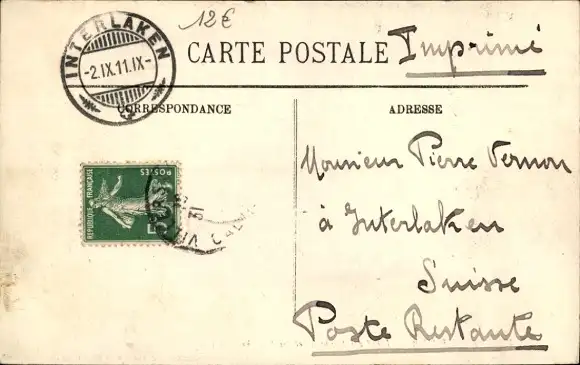 12€
INTERLAKEN
-2.IX.11.IX-
CARTE POSTALE Imprimé
CORRESPONDANCE
ADRESSE
REPUBLIQUE FRANÇAISE
POSTES
5
Monsieur Pierre Vernon
à Interlaken
Suisse
Poste Restante